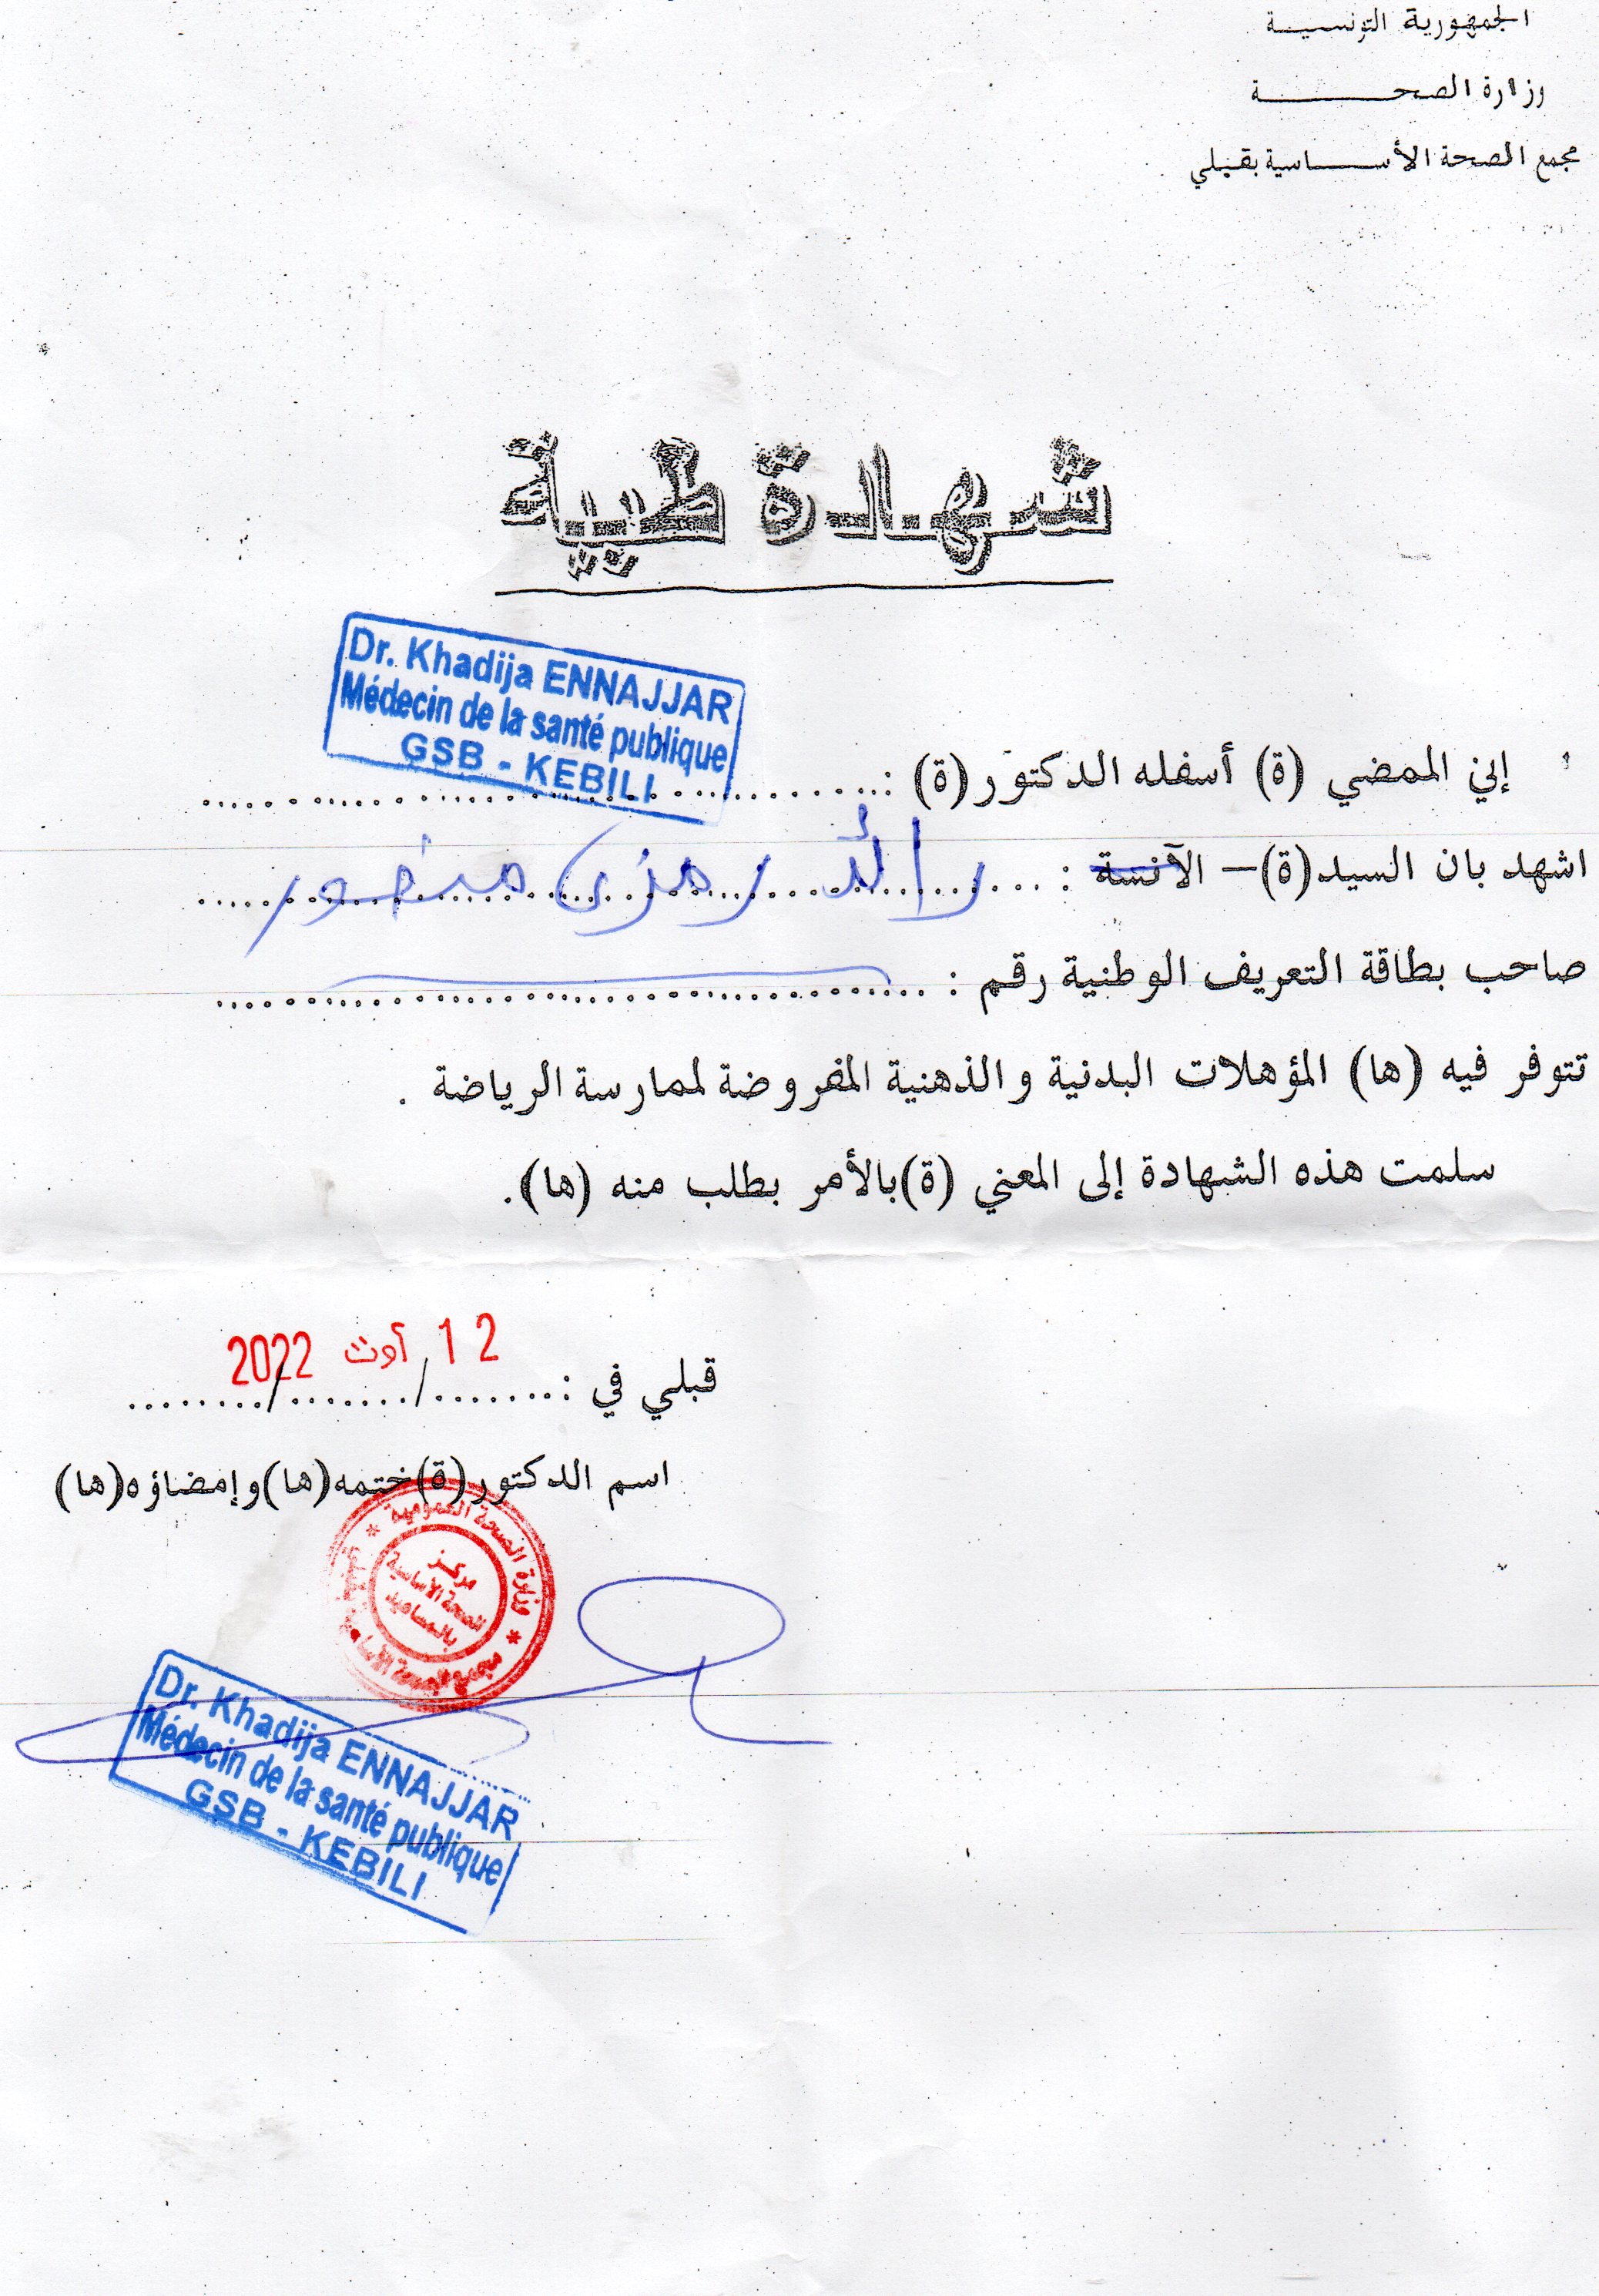 الجمهورية التونسية
وزارة الصحة
مجمع الصحة الأساسية بقبلي
شهادة طبية
Dr. Khadija ENNAJJAR
Médecin de la santé publique
GSB - KEBILI
إني الممضي (ة) أسفله الدكتور (ة) :
اشهد بان السيد(ة) – الآنسة : رائد رمزي منصور
صاحب بطاقة التعريف الوطنية رقم :
تتوفر فيه (ها) المؤهلات البدنية والذهنية المفروضة لممارسة الرياضة .
سلمت هذه الشهادة إلى المعني (ة) بالأمر بطلب منه (ها).
قبلي في : 12 أوت 2022
اسم الدكتور (ة) ختمه (ها) وإمضاؤه (ها)
وزارة الصحة العمومية
مركز
الصحة الأساسية
Dr. Khadija ENNAJJAR
Médecin de la santé publique
GSB - KEBILI